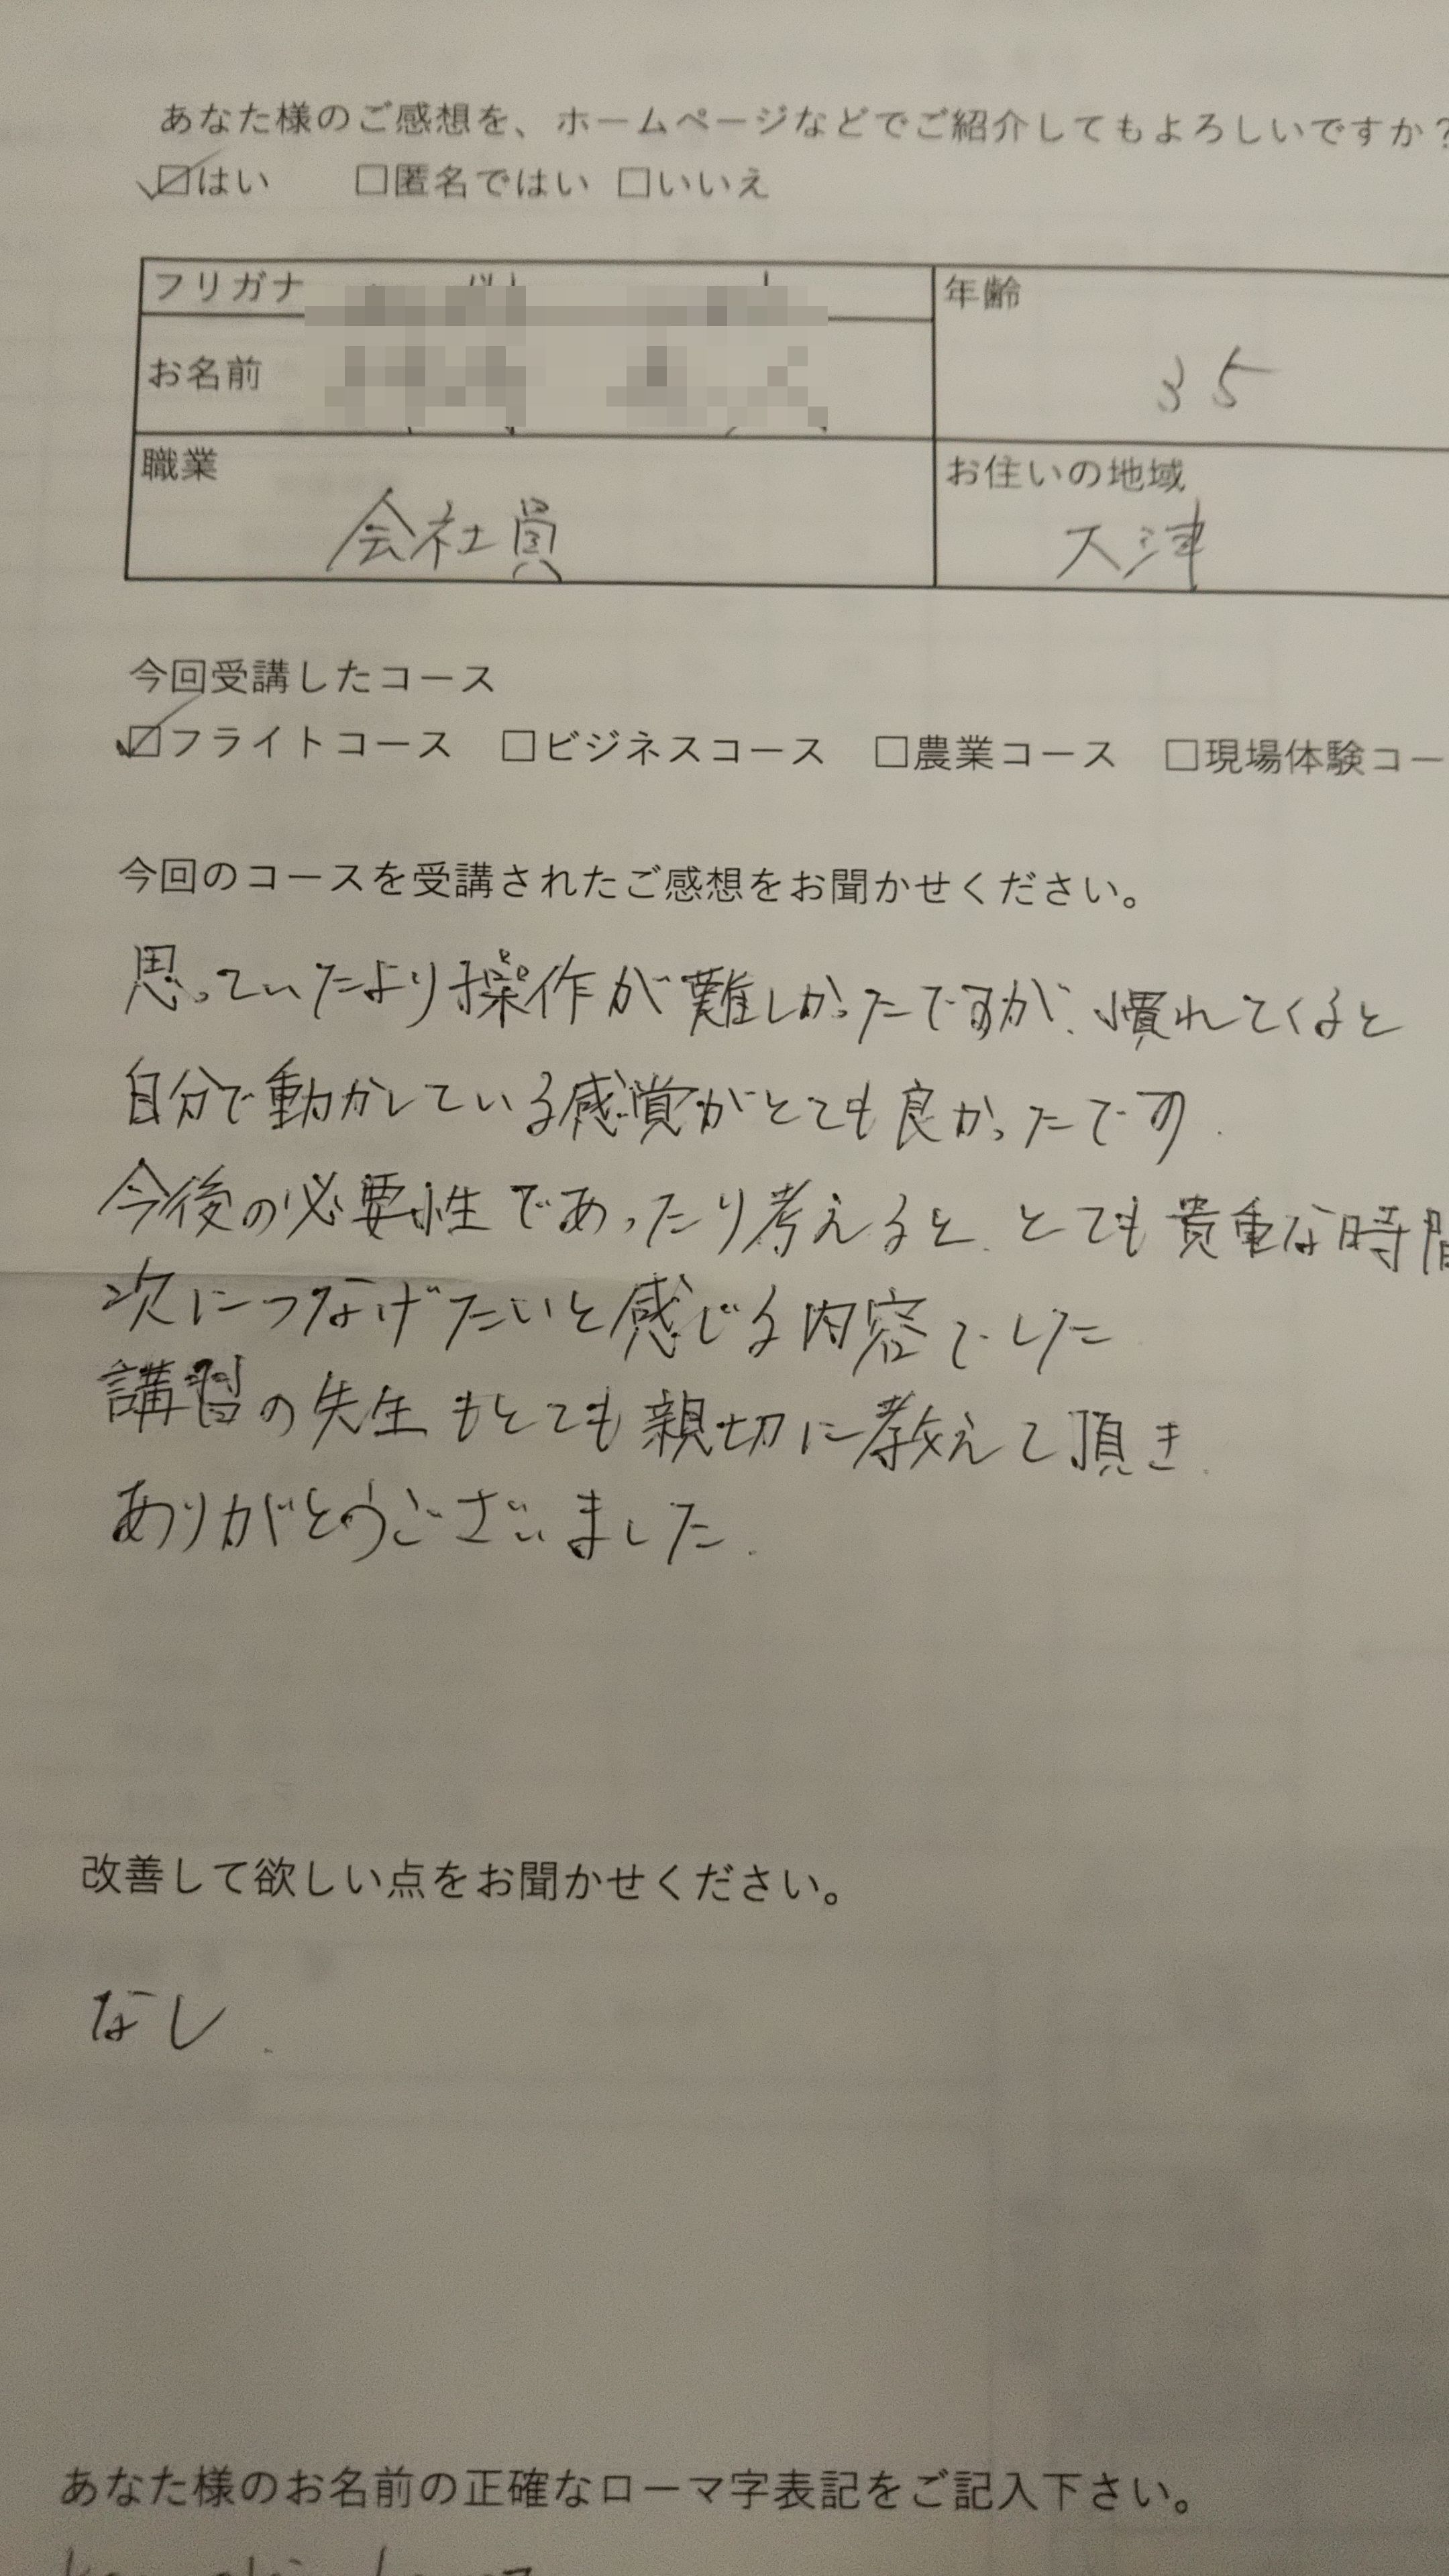 あなた様のご感想を、ホームページなどでご紹介してもよろしいですか?
☑はい　□匿名ではい　□いいえ
フリガナ
お名前
年齢
35
職業
会社員
お住いの地域
大津
今回受講したコース
☑フライトコース　□ビジネスコース　□農業コース　□現場体験コー
今回のコースを受講されたご感想をお聞かせください。
思っていたより操作が難しかったですが、慣れてくると
自分で動かしている感覚がとても良かったです.
今後の必要性であったり考えると、とても貴重な時間
次につなげたいと感じる内容でした
講習の先生もとても親切に教えて頂き.
ありがとうございました.
改善して欲しい点をお聞かせください。
なし.
あなた様のお名前の正確なローマ字表記をご記入下さい。